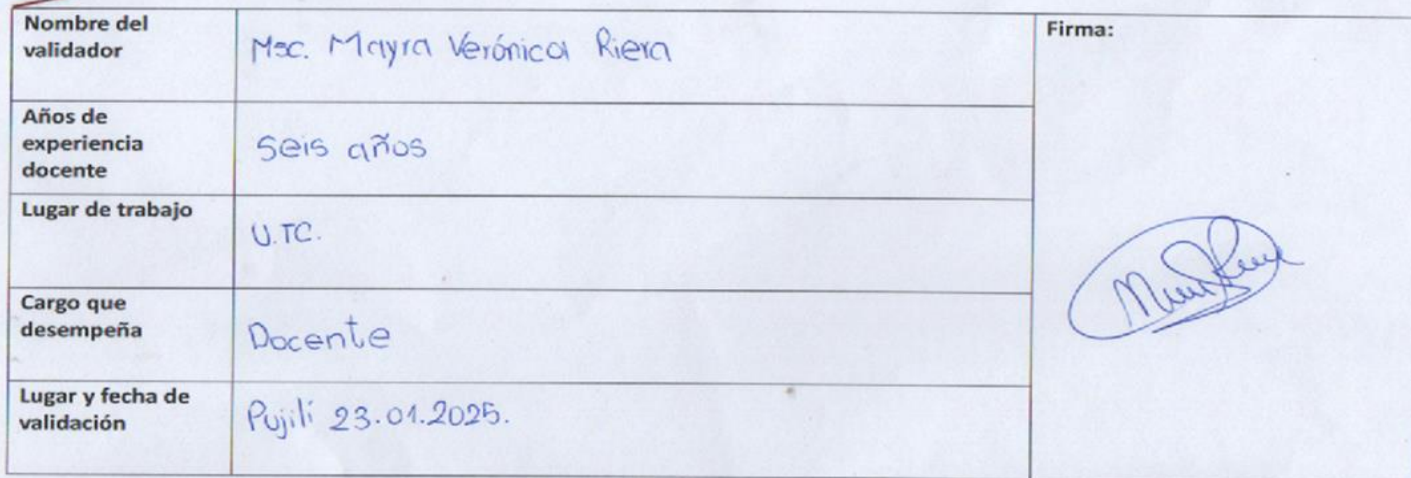 Nombre del
validador
Msc. Mayra Verónica Riera
Firma:
Años de
experiencia
docente
Seis años
Lugar de trabajo
U.TC.
Cargo que
desempeña
Docente
Lugar y fecha de
validación
Pujilí 23.01.2025.